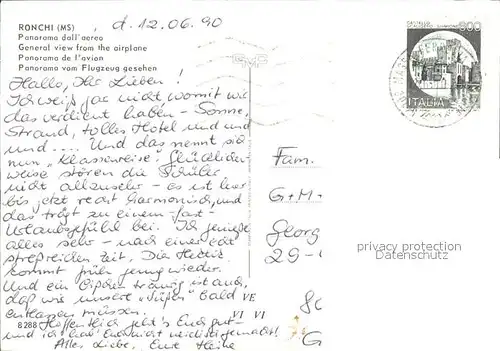 RONCHI (MS)
Panorama dall'aereo
General view from the airplane
Panorama de l'avion
Panorama vom Flugzeug gesehen
d. 12.06.90
Hallo, Ihr Lieben!
Ich weiß gar nicht womit wir
das verdient haben - Sonne,
Strand, tolles Hotel und und
und .... Und das nennt sich
nun "Klassenreise". Glücklicher-
weise stören die Schüler
nicht allzusehr - es ist hier
bis jetzt recht harmonisch, und
das trägt zu einem fast-
Urlaubsgefühl bei. Ich genieße
alles sehr - nach einer
Zeit. Die Hektik
kommt früh genug wieder.
Und ein bißchen traurig ist auch,
daß wir unsere "Süßen" bald
entlassen müssen.
Hoffentlich geht's Euch gut -
und ich hab' Euch nicht neidisch gemacht!
Alles Liebe, Eure Heike
8288
VE
VI VI
800
ITALIA
Fam.
G + M -
Georg
29 -
80
G
privacy protection
Datenschutz